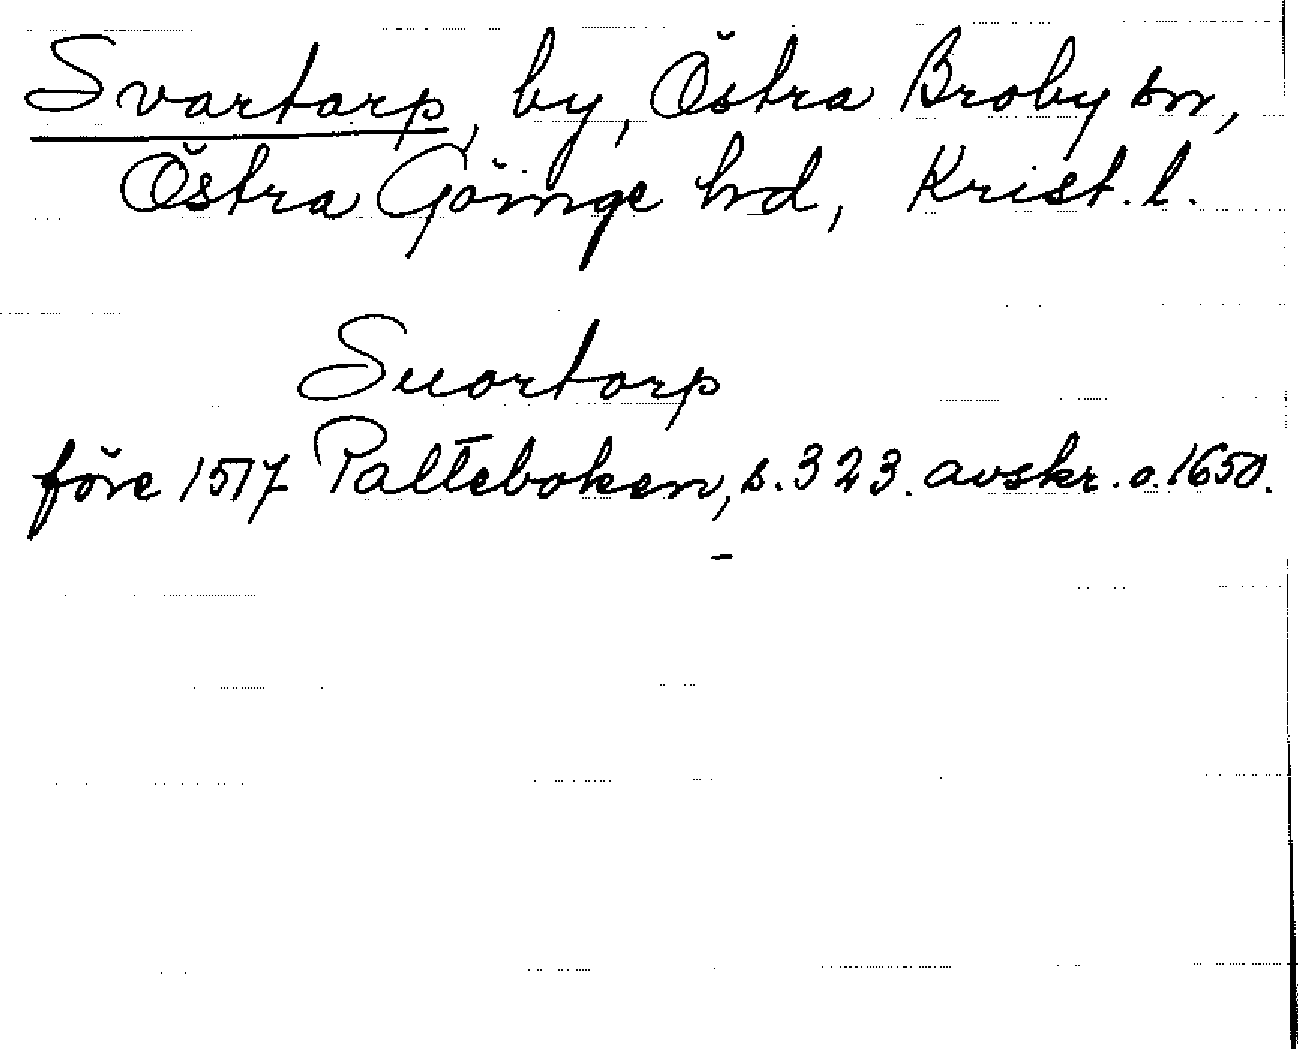 Svartarp, by, Östra Broby sn,
Östra Göinge hd, Krist. l.
Suortorp
före 1517 Palteboken, s. 323. avskr. o. 1650.